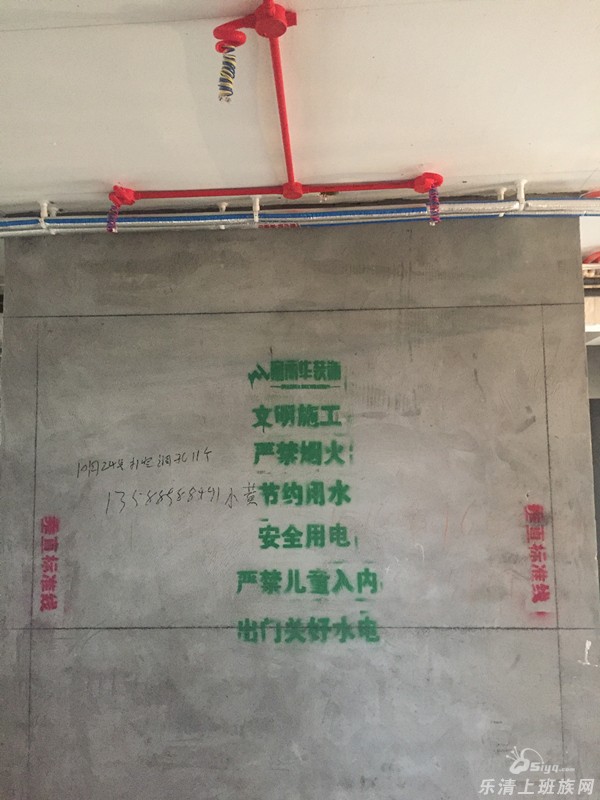 文明施工
严禁烟火
10月24号 打空调孔11个
节约用水
小黄
安全用电
垂直标准线
垂直标准线
严禁儿童入内
出门关好水电
Osiyq.com
乐清上班族网